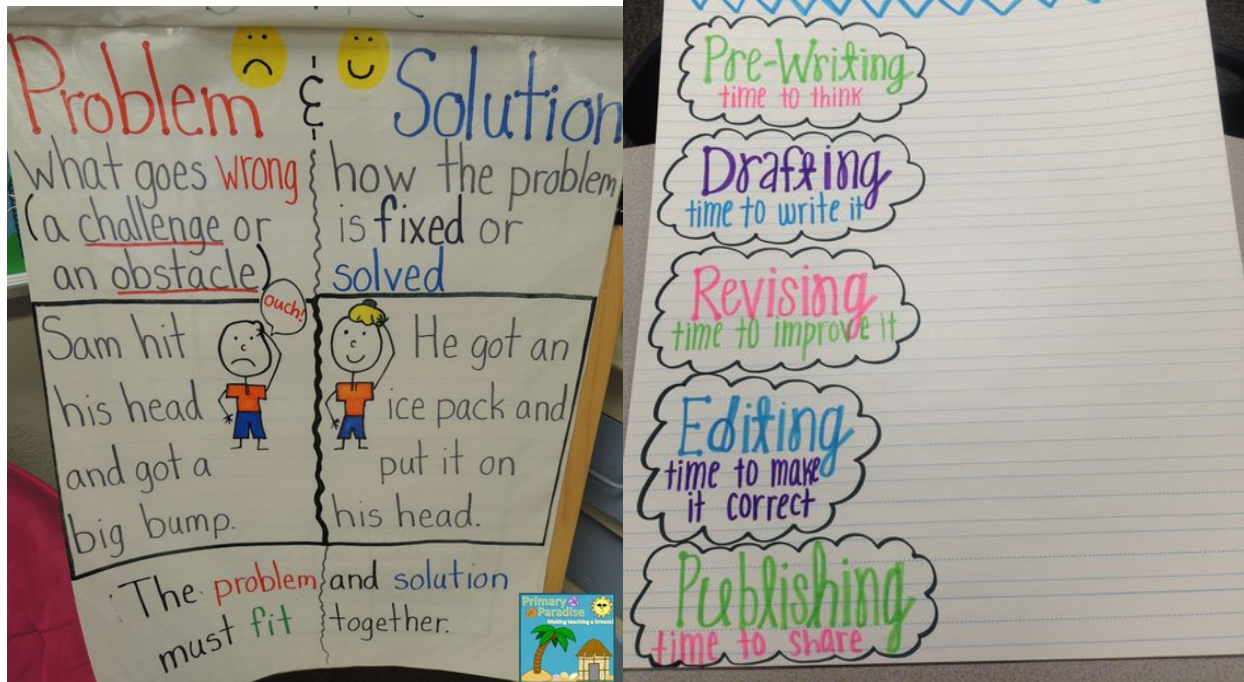 Problem & Solution
What goes wrong
(a challenge or
an obstacle)
how the problem
is fixed or
solved
Sam hit
his head
and got a
big bump.
ouch!
He got an
ice pack and
put it on
his head.
The problem and solution
must fit together.
Primary
Paradise
Making teaching a breeze!
Pre-Writing
time to think
Drafting
time to write it
Revising
time to improve it
Editing
time to make
it correct
Publishing
time to share